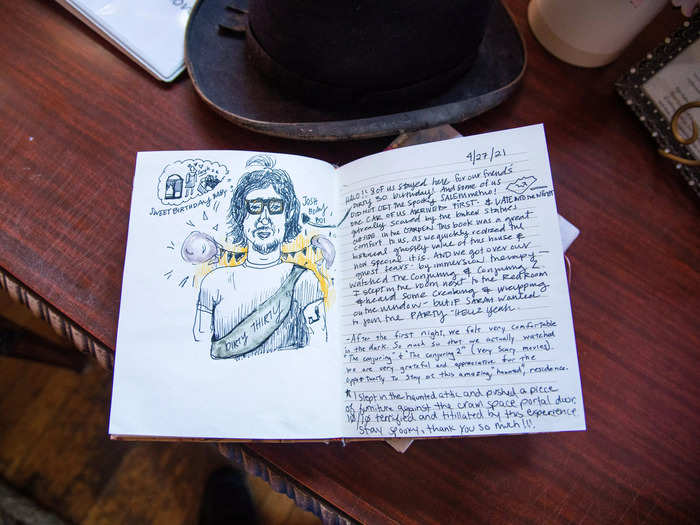 SWEET BIRTHDAY BABY
JOSH
BDAY
BOI
DIRTY THIRTY
4/27/21
HELLO! 8 OF US STAYED HERE FOR OUR FRIENDS'
DIRTY 30 BIRTHDAY! AND SOME OF US
DID NOT GET THE SPOOKY SALEM MEMO!
ONE CAR OF US ARRIVED FIRST & LATE INTO THE NIGHT
ACTUALLY SCARED BY THE BAKED STATUES
OUTSIDE IN THE GARDEN. THIS BOOK WAS A GREAT
COMFORT TO US, AS WE QUICKLY REALIZED THE
HISTORICAL GHOSTLY VALUE OF THIS HOUSE &
HOW SPECIAL IT IS. AND WE GOT OVER OUR
GHOST FEARS BY IMMERSION THERAPY -
WATCHED THE CONJURING & CONJURING 2
I SLEPT IN THE ROOM NEXT TO THE RED ROOM
& HEARD SOME CREAKING & WHAPPING
ON THE WINDOW - BUT IF SARAH WANTED
TO JOIN THE PARTY - HELL YEAH
- After the first night, we felt very comfortable
in the dark. So much so that we actually watched
"The Conjuring" & "The Conjuring 2" (very scary movies).
We are very grateful and appreciative for the
opportunity to stay at this amazing "haunted" residence.
* I slept in the haunted attic and pushed a piece
of furniture against the crawl space portal door.
10/10 terrified and titillated by this experience
Stay spooky, thank you so much!!!